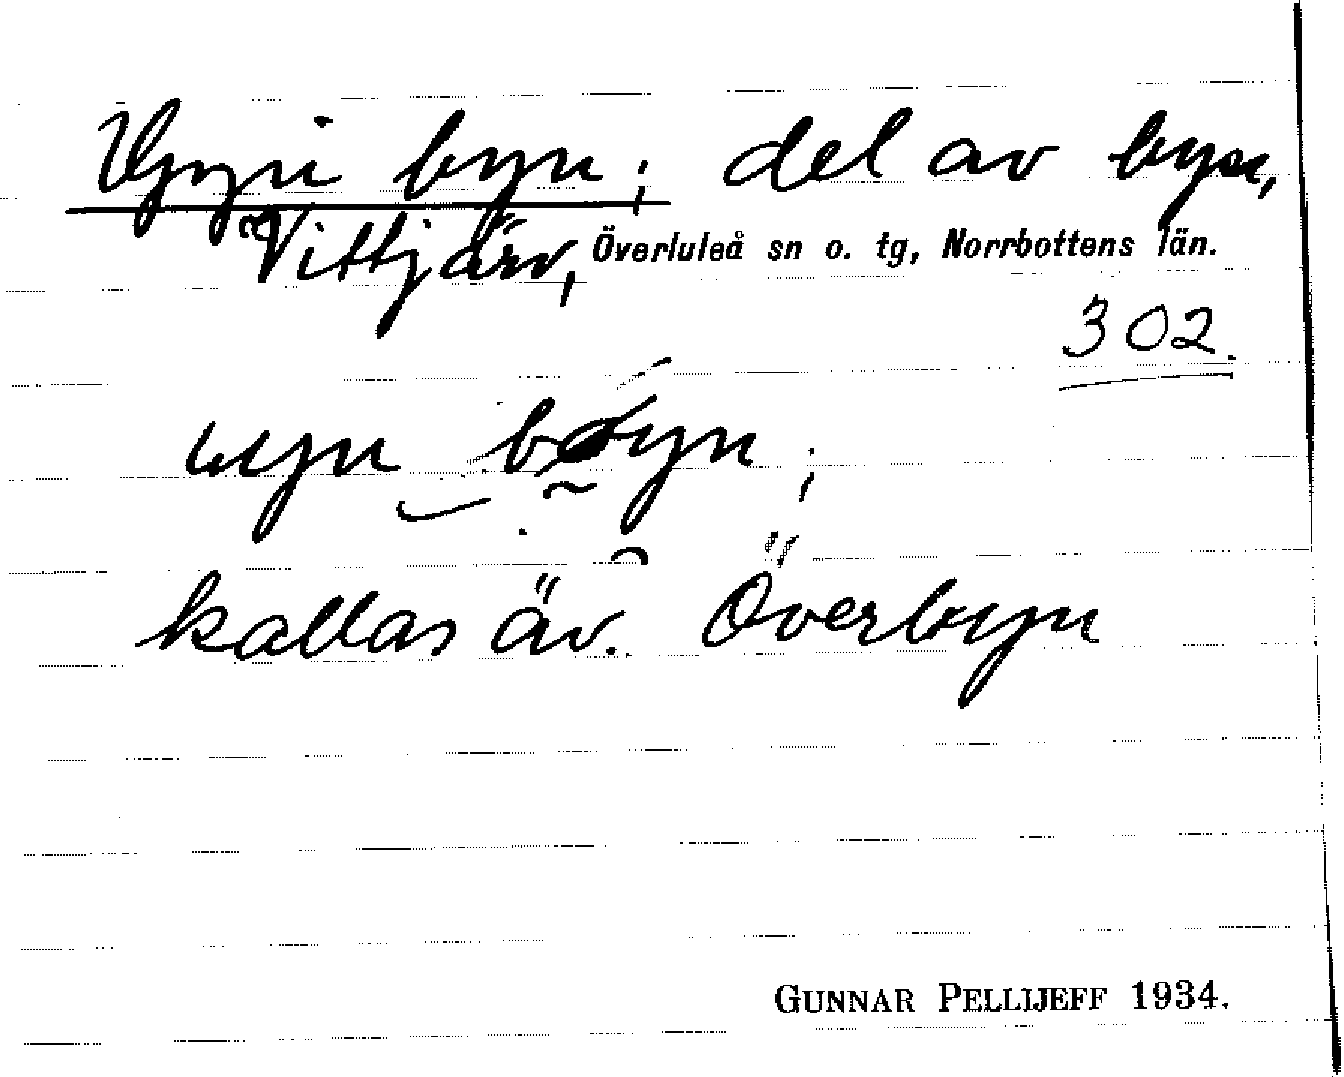 byn; del av byn,
Vittjärv, Överluleå sn o. tg, Norrbottens län.
302.
byn;
kallas äv. Överbyn
GUNNAR PELLIJEFF 1934.